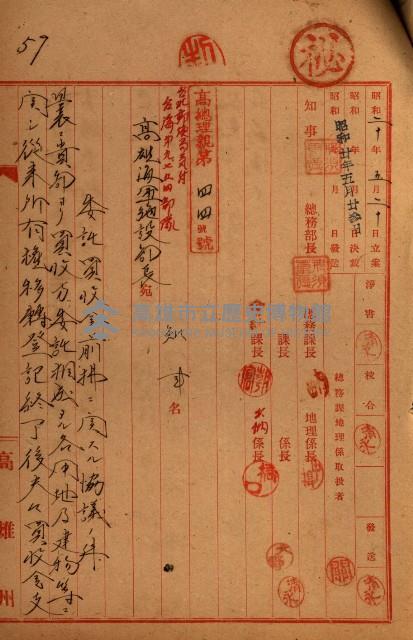 57
秘
昭和二十年五月二十日立案
昭和 年 月 日決裁
昭和廿年五月廿
昭和 年 月 日發送
淨書
校合
發送
知事
總務部長
總務課地理係取扱者
總務課長
地理係長
課長
係長
會計課長
出納係長
高總理親第四四號
高雄海軍施設部長宛
知事名
委託買收金前拂ニ関スル協議ノ件
曩ニ貴部ヨリ買收方委託相成タル各用地及建物等ニ
関シ從来所有權移轉登記終了後夫々買收金支
高雄州
高雄市立歷史博物館
KAOHSIUNG MUSEUM OF HISTORY